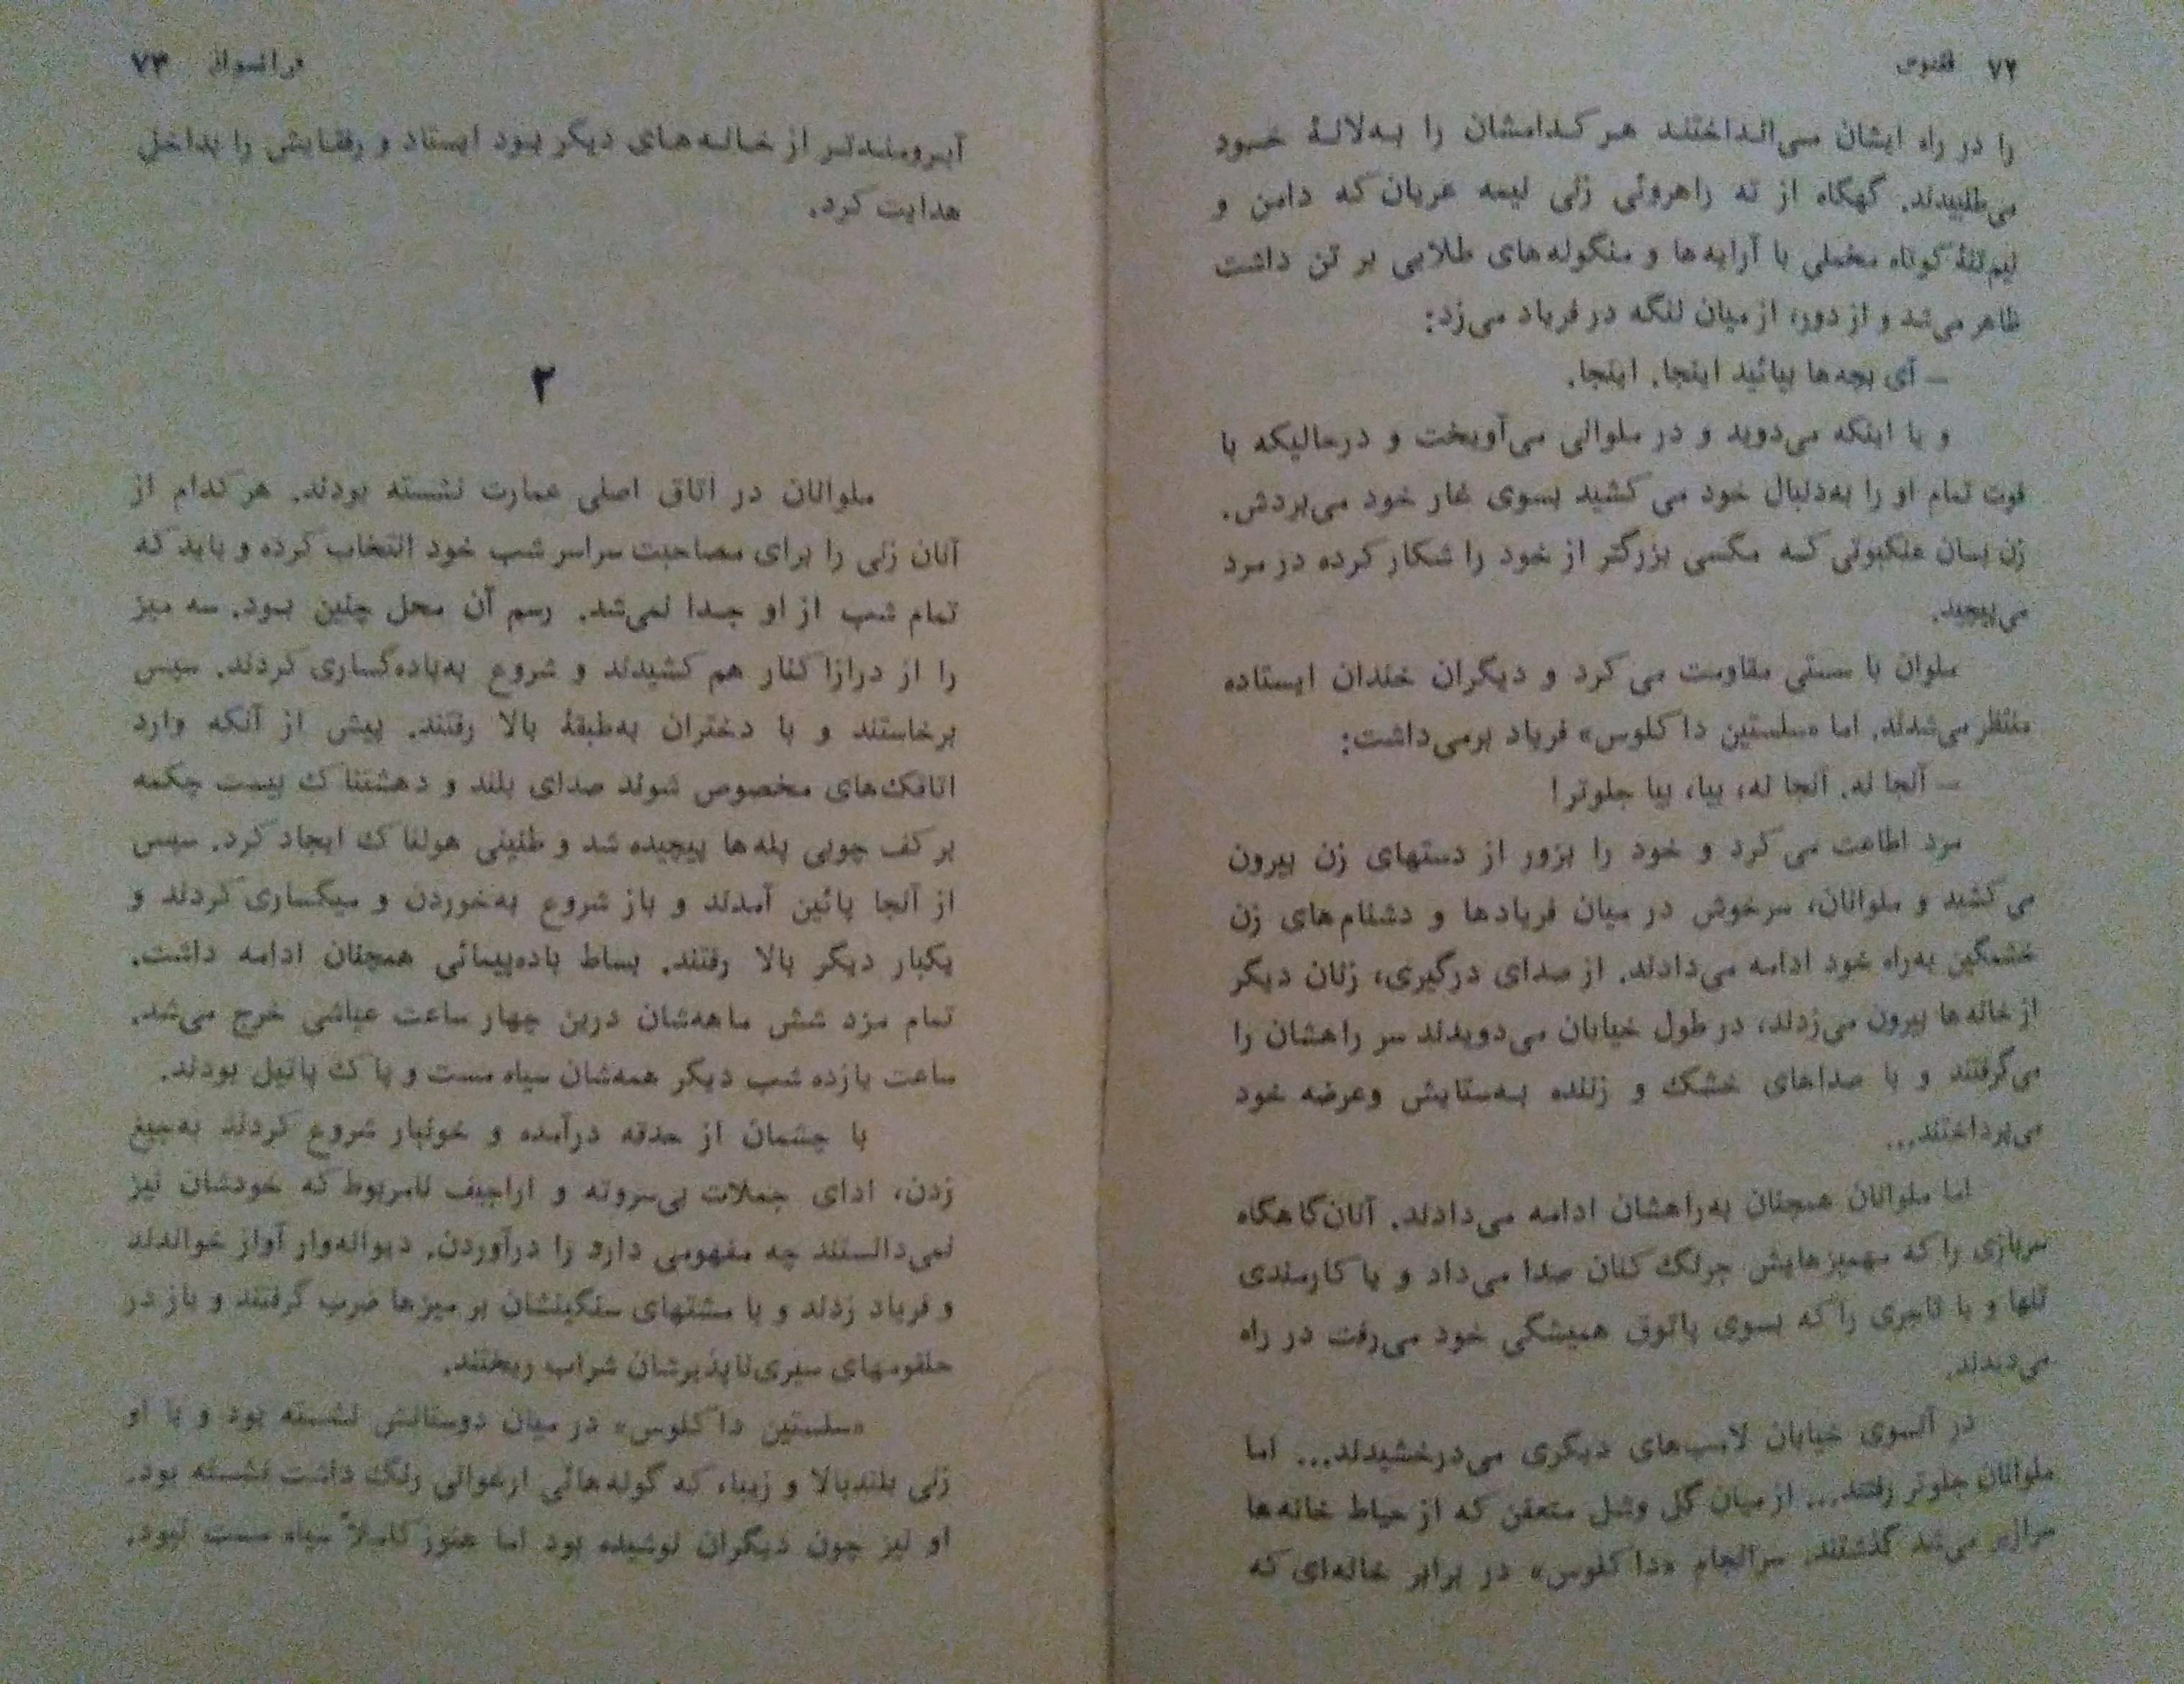 ۷۲ ققنوس
را در راه ایشان می‌انداختند هر کدامشان را به‌لانهٔ خود
می‌طلبیدند. گهگاه از ته راهروئی زنی نیمه عریان که دامن و
نیم‌تنهٔ کوتاه مخملی با آرایه‌ها و منگوله‌های طلایی بر تن داشت
ظاهر می‌شد و از دور، از میان لنگه در فریاد می‌زد:
— آی بچه‌ها بیائید اینجا. اینجا.
و یا اینکه می‌دوید و در ملوانی می‌آویخت و درحالیکه با
قوت تمام او را به‌دنبال خود می‌کشید بسوی غار خود می‌بردش.
زن بسان عنکبوتی که مگسی بزرگتر از خود را شکار کرده در مرد
می‌پیچید.
ملوان با سستی مقاومت می‌کرد و دیگران خندان ایستاده
منتظر می‌شدند. اما «سلستین دا کلوس» فریاد برمی‌داشت:
— آنجا نه. آنجا نه، بیا، بیا جلوتر!
مرد اطاعت می‌کرد و خود را بزور از دستهای زن بیرون
می‌کشید و ملوانان، سرخوش در میان فریادها و دشنام‌های زن
خشمگین به‌راه خود ادامه می‌دادند. از صدای درگیری، زنان دیگر
از خانه‌ها بیرون می‌زدند، در طول خیابان می‌دویدند سر راهشان را
می‌گرفتند و با صداهای خشک و زننده به‌ستایش وعرضه خود
می‌پرداختند...
اما ملوانان همچنان به‌راهشان ادامه می‌دادند. آنان‌گاهگاه
سربازی را که مهمیزهایش جرنگ کنان صدا می‌داد و یا کارمندی
تنها و یا تاجری را که بسوی پاتوق همیشگی خود می‌رفت در راه
می‌دیدند.
در آنسوی خیابان لامپ‌های دیگری می‌درخشیدند... اما
ملوانان جلوتر رفتند... از میان گل وشل متعفن که از حیاط خانه‌ها
سرازیر می‌شد گذشتند. سرانجام «دا کلوس» در برابر خانه‌ای که
فرانسواز ۷۳
آبرومندتر از خانه‌های دیگر بود ایستاد و رفقایش را بداخل
هدایت کرد.
۲
ملوانان در اتاق اصلی عمارت نشسته بودند. هر کدام از
آنان زنی را برای مصاحبت سراسر شب خود انتخاب کرده و باید که
تمام شب از او جدا نمی‌شد. رسم آن محل چنین بود. سه میز
را از درازا کنار هم کشیدند و شروع به‌باده‌گساری کردند. سپس
برخاستند و با دختران به‌طبقهٔ بالا رفتند. پیش از آنکه وارد
اتاقک‌های مخصوص شوند صدای بلند و دهشتناک بیست چکمه
بر کف چوبی پله‌ها پیچیده شد و طنینی هولناک ایجاد کرد. سپس
از آنجا پائین آمدند و باز شروع به‌خوردن و میگساری کردند و
یکبار دیگر بالا رفتند. بساط باده‌پیمائی همچنان ادامه داشت.
تمام مزد شش ماهه‌شان درین چهار ساعت عیاشی خرج می‌شد.
ساعت یازده شب دیگر همه‌شان سیاه مست و پاک پاتیل بودند.
با چشمان از حدقه درآمده و خونبار شروع کردند به‌جیغ
زدن، ادای جملات بی‌سروته و اراجیف نامربوط که خودشان نیز
نمی‌دانستند چه مفهومی دارد را درآوردن. دیوانه‌وار آواز خواندند
و فریاد زدند و با مشتهای سنگینشان بر میزها ضرب گرفتند و باز در
حلقومهای سیری‌ناپذیرشان شراب ریختند.
«سلستین دا کلوس» در میان دوستانش نشسته بود و با او
زنی بلندبالا و زیبا، که گونه‌هائی ارغوانی رنگ داشت نشسته بود.
او نیز چون دیگران نوشیده بود اما هنوز کاملاً سیاه مست نبود.